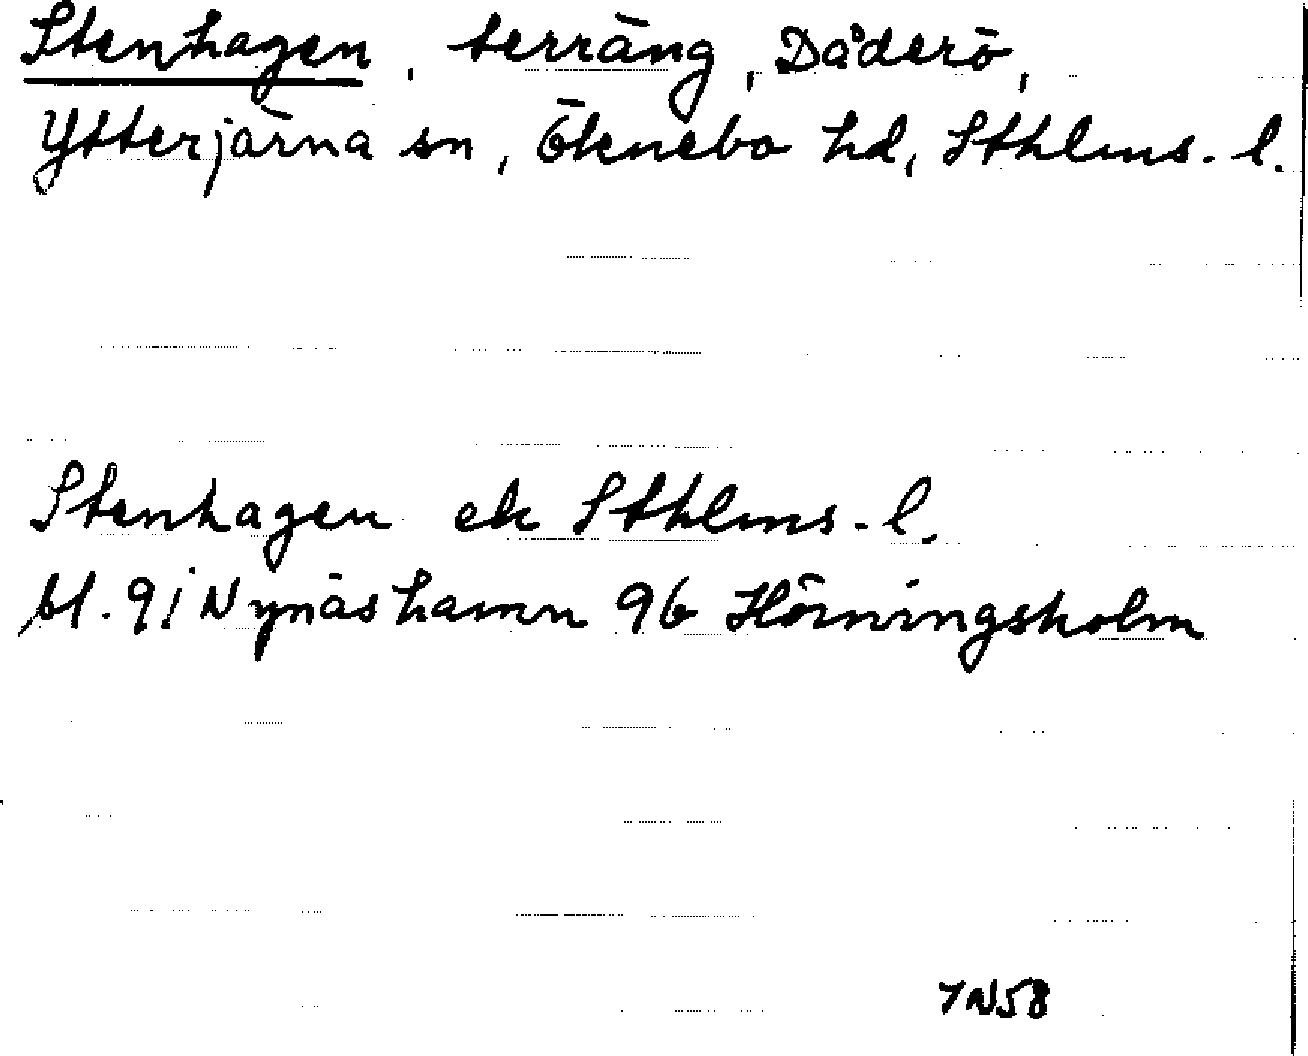 Stenhagen, terräng, Dåderö,
Ytterjärna sn, Öknebo hd, Sthlms. l.
Stenhagen ek Sthlms. l.
bl. 91 Nynäshamn 96 Hörningsholm
7N58